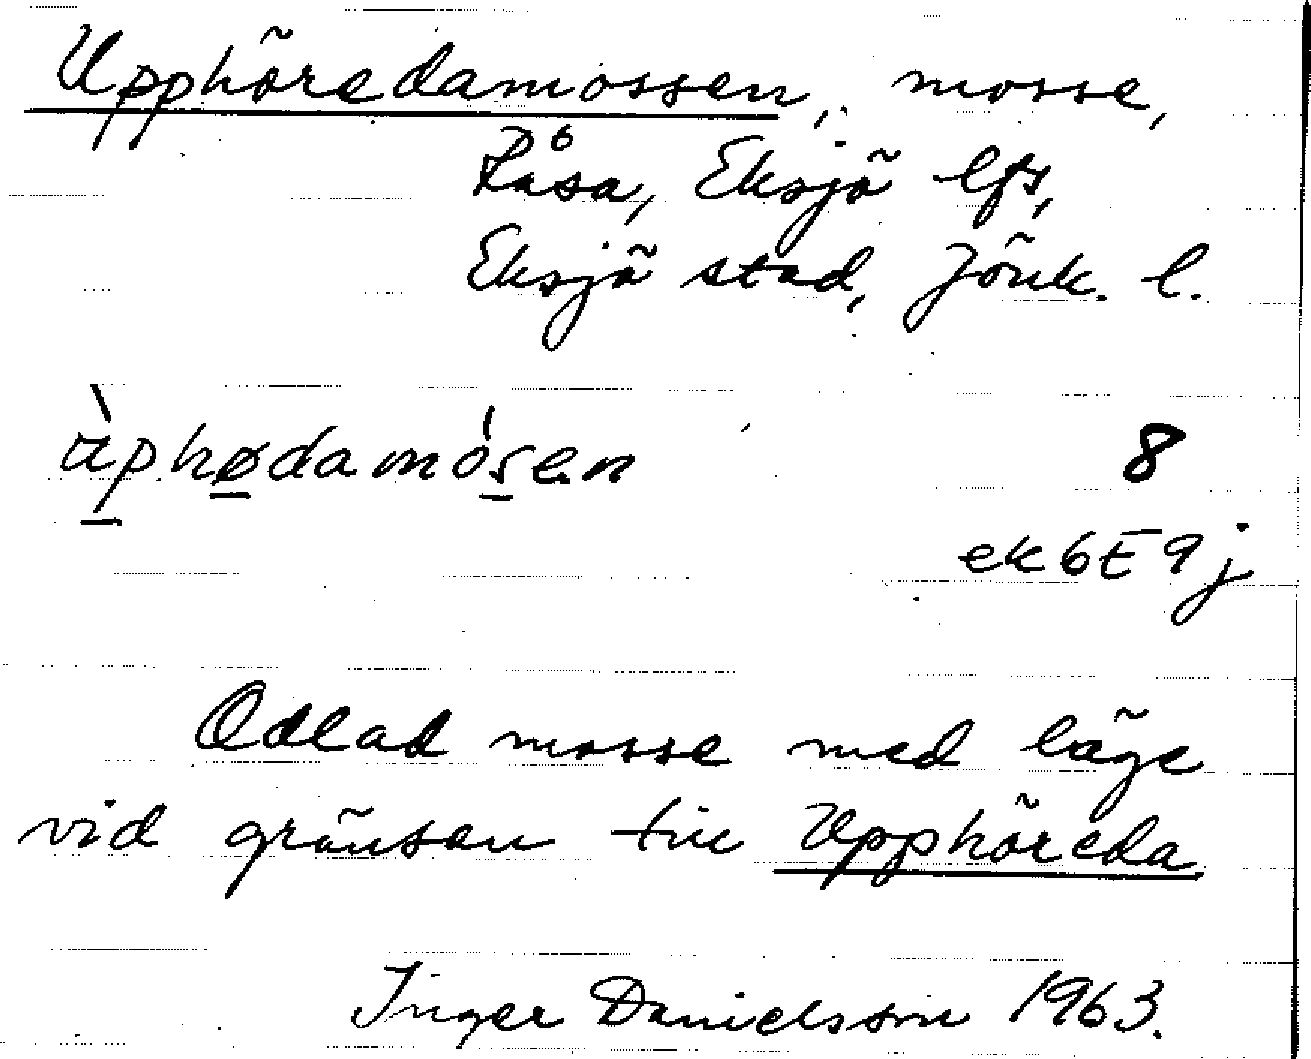 Upphöredamossen, mosse,
Råsa, Eksjö lfs,
Eksjö stad, Jönk. l.
àphødamósen
8
ek6E9j
Odlad mosse med läge
vid gränsen till Upphöreda
Inger Danielsson 1963.